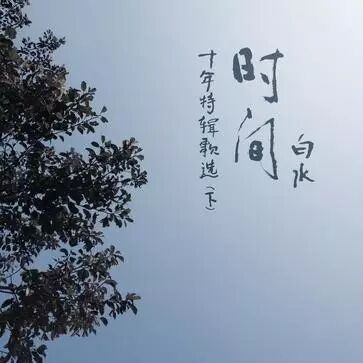 时间
白水
十年特辑歌选（下）